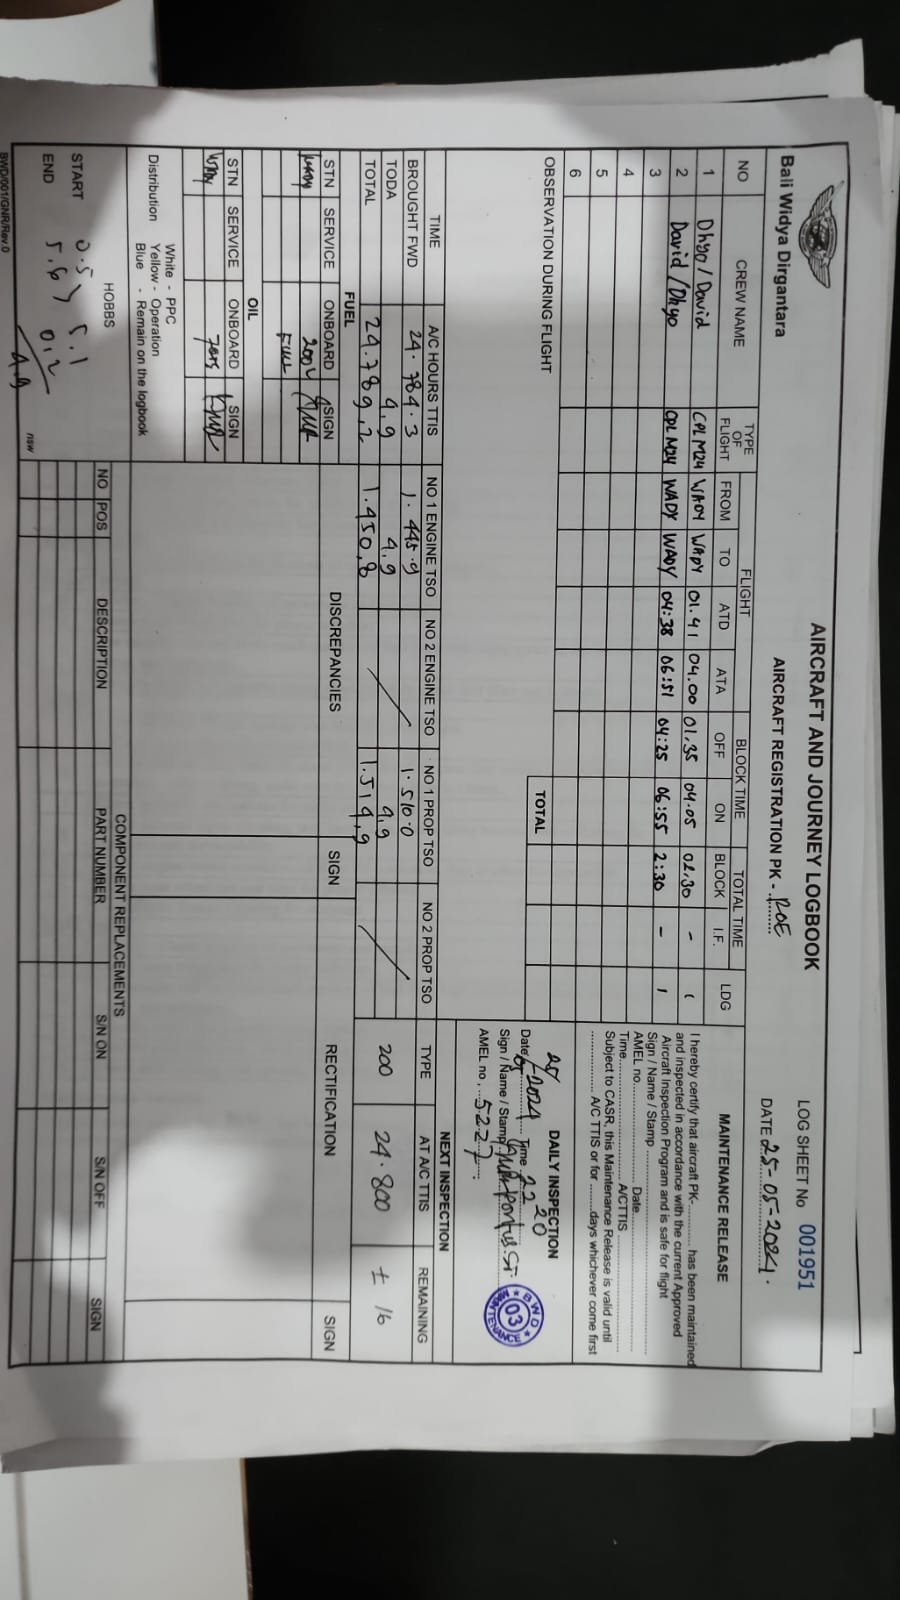 Bali Widya Dirgantara
AIRCRAFT AND JOURNEY LOGBOOK
AIRCRAFT REGISTRATION PK - ROE
LOG SHEET No 001951
DATE 25-05-2024.
NO CREW NAME TYPE OF FLIGHT FLIGHT BLOCK TIME TOTAL TIME LDG
FROM TO ATD ATA OFF ON BLOCK I.F.
1 Dhyo/David CPL M24 WADY WADY 01.41 04.00 01.35 04.05 02.30 - 1
2 David/Dhyo CPL M24 WADY WADY 04:38 06:51 04:25 06:55 2:30 - 1
3
4
5
6
TOTAL
OBSERVATION DURING FLIGHT
MAINTENANCE RELEASE
I hereby certify that aircraft PK-.......... has been maintained
and inspected in accordance with the current Approved
Aircraft Inspection Program and is safe for flight
Sign / Name / Stamp
AMEL no. Date
Time A/CTTIS
Subject to CASR, this Maintenance Release is valid until
A/C TTIS or for ........days whichever come first
DAILY INSPECTION
Date 25/05-2024 Time 22 20
Sign / Name / Stamp
BWD 03 MAINTENANCE
AMEL no. 5227
TIME A/C HOURS TTIS NO 1 ENGINE TSO NO 2 ENGINE TSO NO 1 PROP TSO NO 2 PROP TSO
BROUGHT FWD 24.784.3 1.445.9 1.510.0
TODA 4,9 4,9 4,9
TOTAL 24.789,2 1.450,8 1.514,9
NEXT INSPECTION
TYPE AT A/C TTIS REMAINING
200 24.800 ± 16
FUEL
STN SERVICE ONBOARD SIGN
WADY 200L
FUEL
OIL
STN SERVICE ONBOARD SIGN
WADY 7QTS
DISCREPANCIES SIGN RECTIFICATION SIGN
Distribution White - PPC
Yellow - Operation
Blue - Remain on the logbook
HOBBS
START 0.5 5.1
END 5.6 0.2
4.9
nsw
COMPONENT REPLACEMENTS
NO POS DESCRIPTION PART NUMBER S/N ON S/N OFF SIGN
BWD/001/GNR/Rev.0